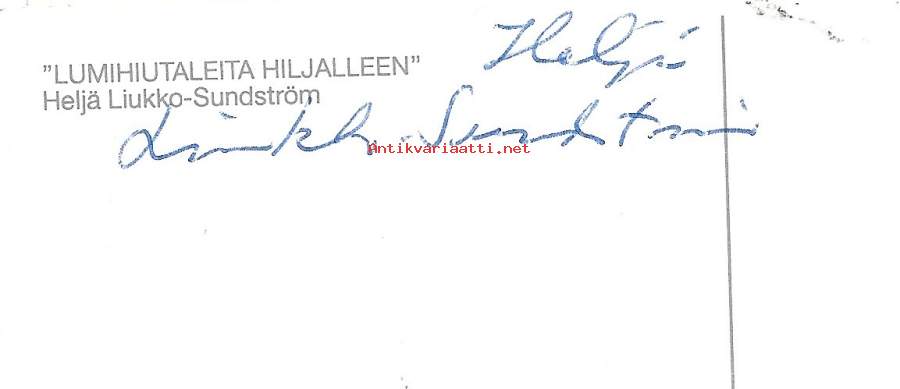 "LUMIHIUTALEITA HILJALLEEN"
Heljä Liukko-Sundström
Heljä
Liukko-Sundström
Antikvariaatti.net